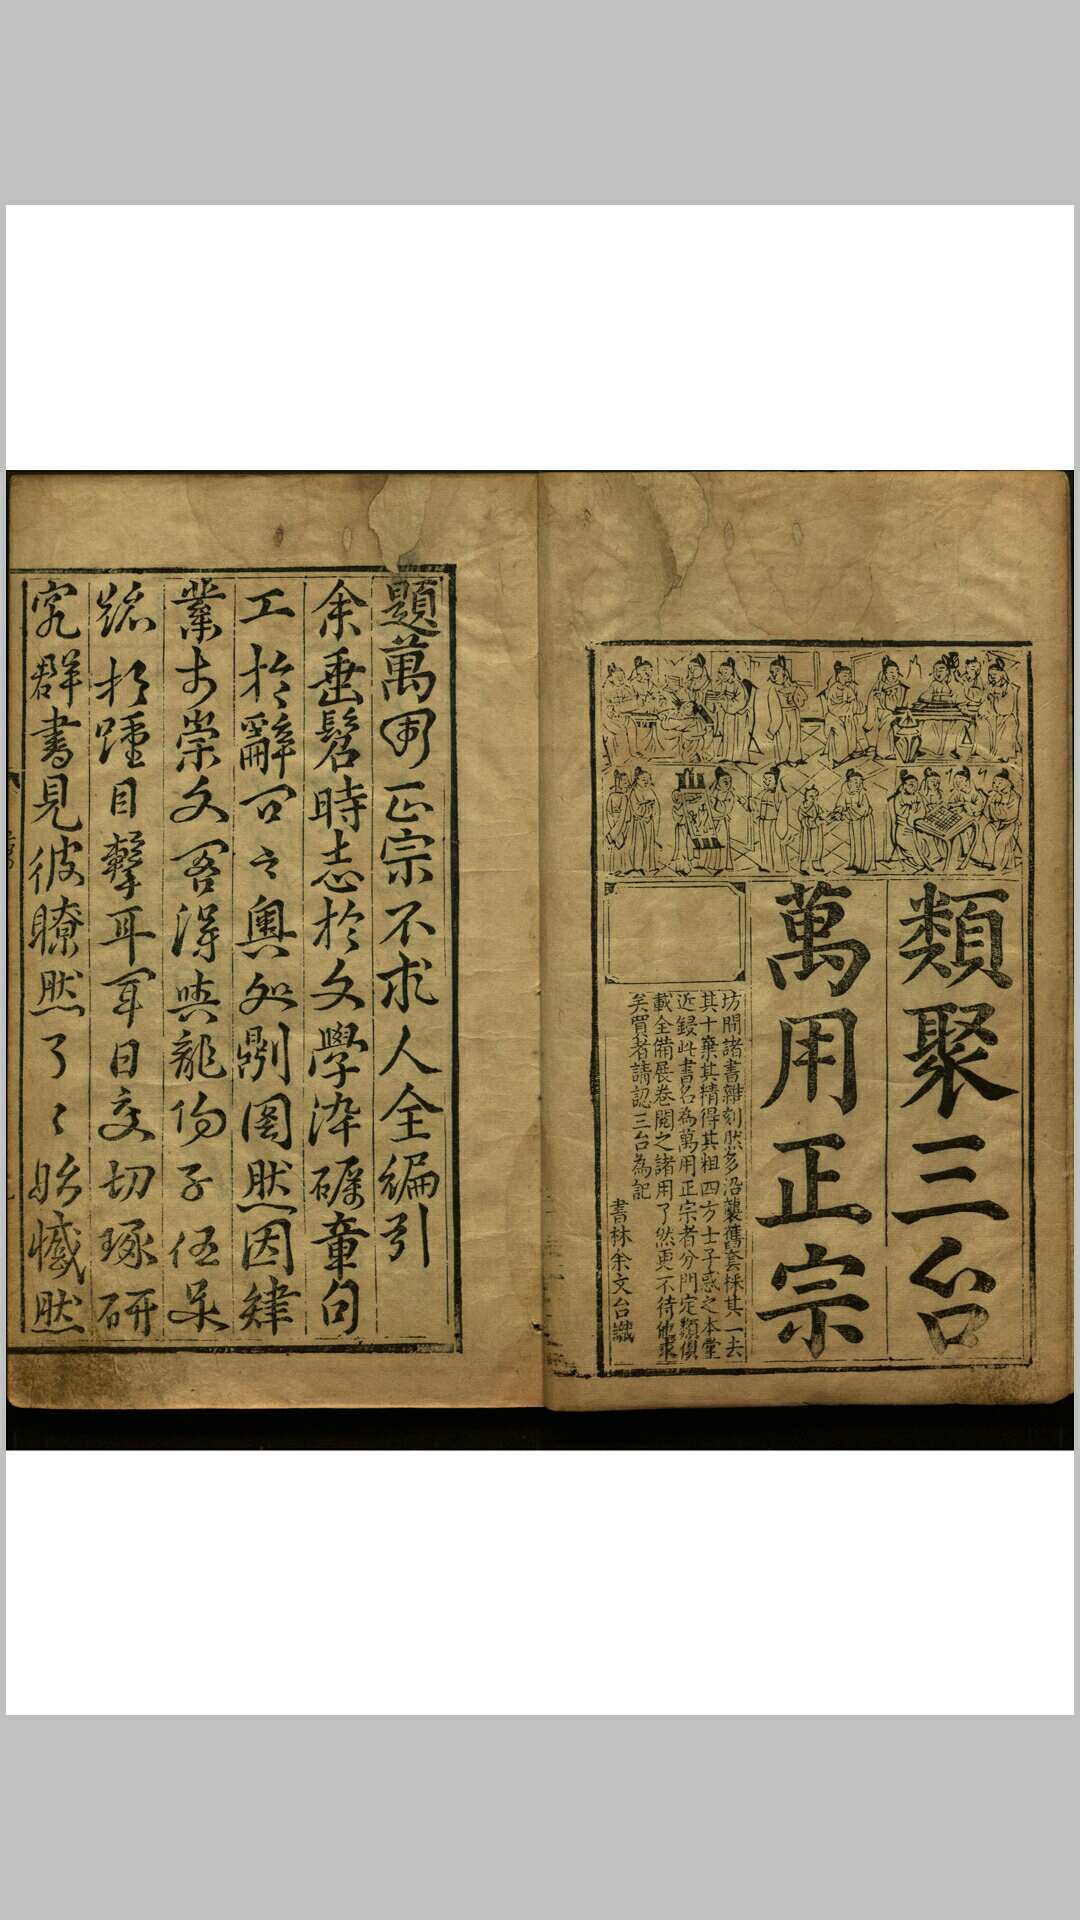 類聚三台
萬用正宗
坊間諸書雜刻然多沿襲舊套採其一去
其十棄其精得其粗四方士子惑之本堂
近鋟此書名為萬用正宗者分門定類俱
載全備展卷閱之諸用了然更不待他求
矣買者請認三台為記
書林余文台識
題萬用正宗不求人全編引
余垂髫時志於文學淬礪章句
工於辭之奧然因肄
業崇文得與龍陽子伍
踵目擊耳聞日交切琢研
究群書見彼瞭然了〻始憾然